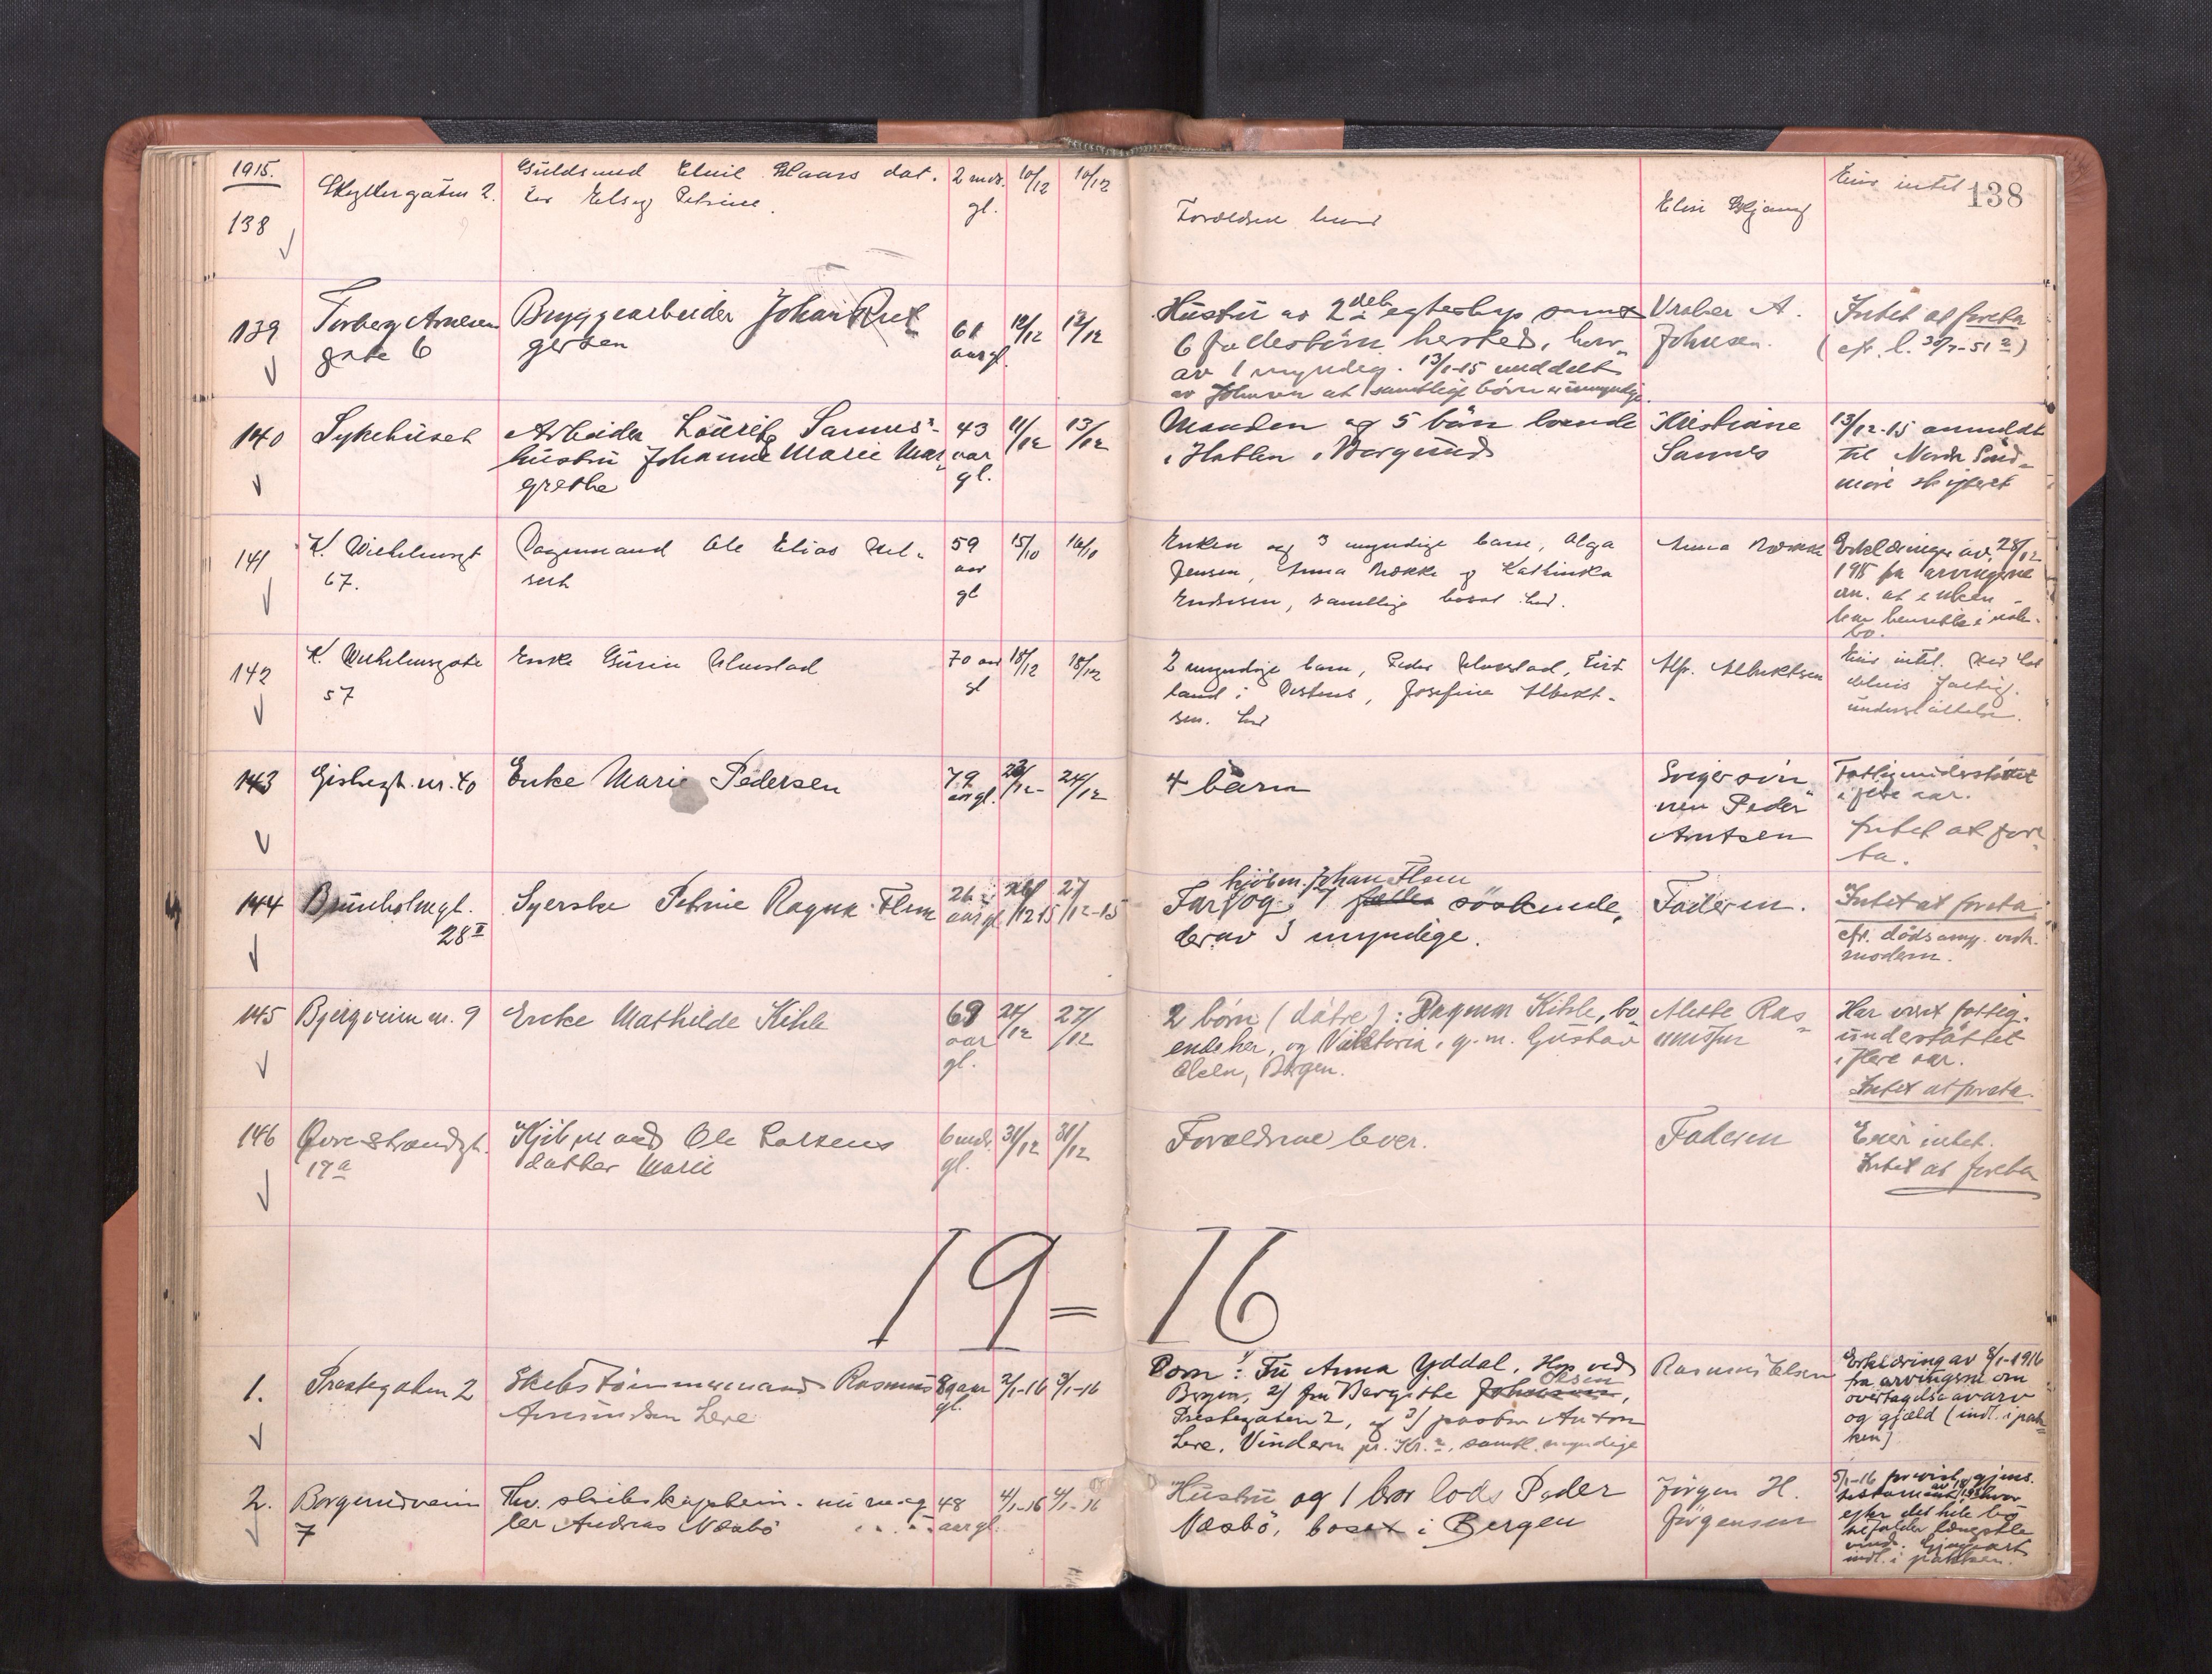 1915.
138
Skyttergaten 2.
Guldsmed Emil Haars dat.
ter Elsy Petrine.
2 mdr.
gl.
10/12
10/12
Forældrene her
Elise
Eier intet
138
139
Torberg Arnesen
gate 6
Bryggearbeider Johan
gersen
61
aar gl.
12/12
12/12
Hustru av 2det egteskap samt
6 fællesbørn hersteds, hvor
av 1 myndig. 13/1-15 meddelt
av Johnsen at samtlige børn er umyndige.
Vraker A.
Johnsen.
Intet at foreta
(cfr. l. 30/7-51 )
140
Sykehuset
Arbeider Lauritz Sannes'
hustru Johanne Marie Mar
grethe
43
aar
gl.
11/12
13/12
Manden og 5 børn boende
i Hatlen i Borgund
Kristiane
Sannes
13/12-15 anmeldt
til Nordre Sønd-
møre skifteret
141
K. Wilhelmsgt
67.
Vognmand Ole Elias Nel-
sen
59
aar
gl
15/10
16/10
Enken og 3 myndige barn, Olga
Jensen, Anna Brække og Kathinka
Endresen, samtlige bosat her.
Anna Brække
Erklæringer av 28/12
1915 fra arvingerne
om at enken
kan hensitte i uskiftet
bo.
142
K. Wilhelmsgate
57
Enke Gurine Ulmestad
70 aar
gl
18/12
18/12
2 myndige barn, Peder Ulmestad,
land i Vestnes, Josefine Albrekt-
sen. her
Alfr. Albrektsen
Eier intet. Har hat
delvis fattig-
understøttelse.
143
Gishegt. nr. 40
Enke Marie Pedersen
79
aar gl.
23/12
24/12
4 børn
Svigersøn
nen Peder
Arntsen
Fattigunderstøttet
i flere aar.
Intet at fore
ta.
144
Bruunholmgt.
28 II
Syerske Petrine Ragna Flem
26
aar gl
26/12 15
27/12-15
kjøbm. Johan Flem
Far og 7 fælles søskende,
derav 3 myndige.
Faderen.
Intet at foreta
cfr. dødsanm. vedr.
moderen.
145
Bjergveien nr. 9
Enke Mathilde Kihle
69
aar
gl.
24/12
27/12
2 børn (døtre): Dagmar Kihle, bo
ende her, og Viktoria, g. m. Gustav
Olsen, Bergen.
Mette Ras
mussen
Har vært fattig-
understøttet
i flere aar.
Intet at foreta.
146
Øvre Strandgt.
19a
Kjøbmand Ole Larsens
datter Marie
6 mdr.
gl.
31/12
31/12
Forældrene lever.
Faderen
Eier intet.
Intet at foreta
19=16
1.
Prestegaten 2
Skibstømmermand Rasmus
Amundsen Leve
89 aar
gl.
2/1-16
3/1-16
Børn: 1/ Fru Anna Yddal, Hop ved
Olsen
Bergen, 2/ fru Bergitte Johnsen,
Prestegaten 2, og 3/ pastor Anton
Leve, Vinderen pr. Kr.a, samtl. myndige
Rasmus Olsen
Erklæring av 8/1-1916
fra arvingerne om
overtagelse av arv
og gjæld (indl. i pak
ken)
2.
Borgundveien
7
Fhv. skibskaptein nu mæg
ler Andreas Næsbø
48
aar gl.
4/1-16
4/1-16
Hustru og 1 bror lods Peder
Næsbø, bosat i Bergen
Jørgen H.
Jørgensen
5/1-16 forevist gjens.
testament hvor
efter det hele bo
tilfalder længstle
vende. Gjenpart
indl. i pakken.